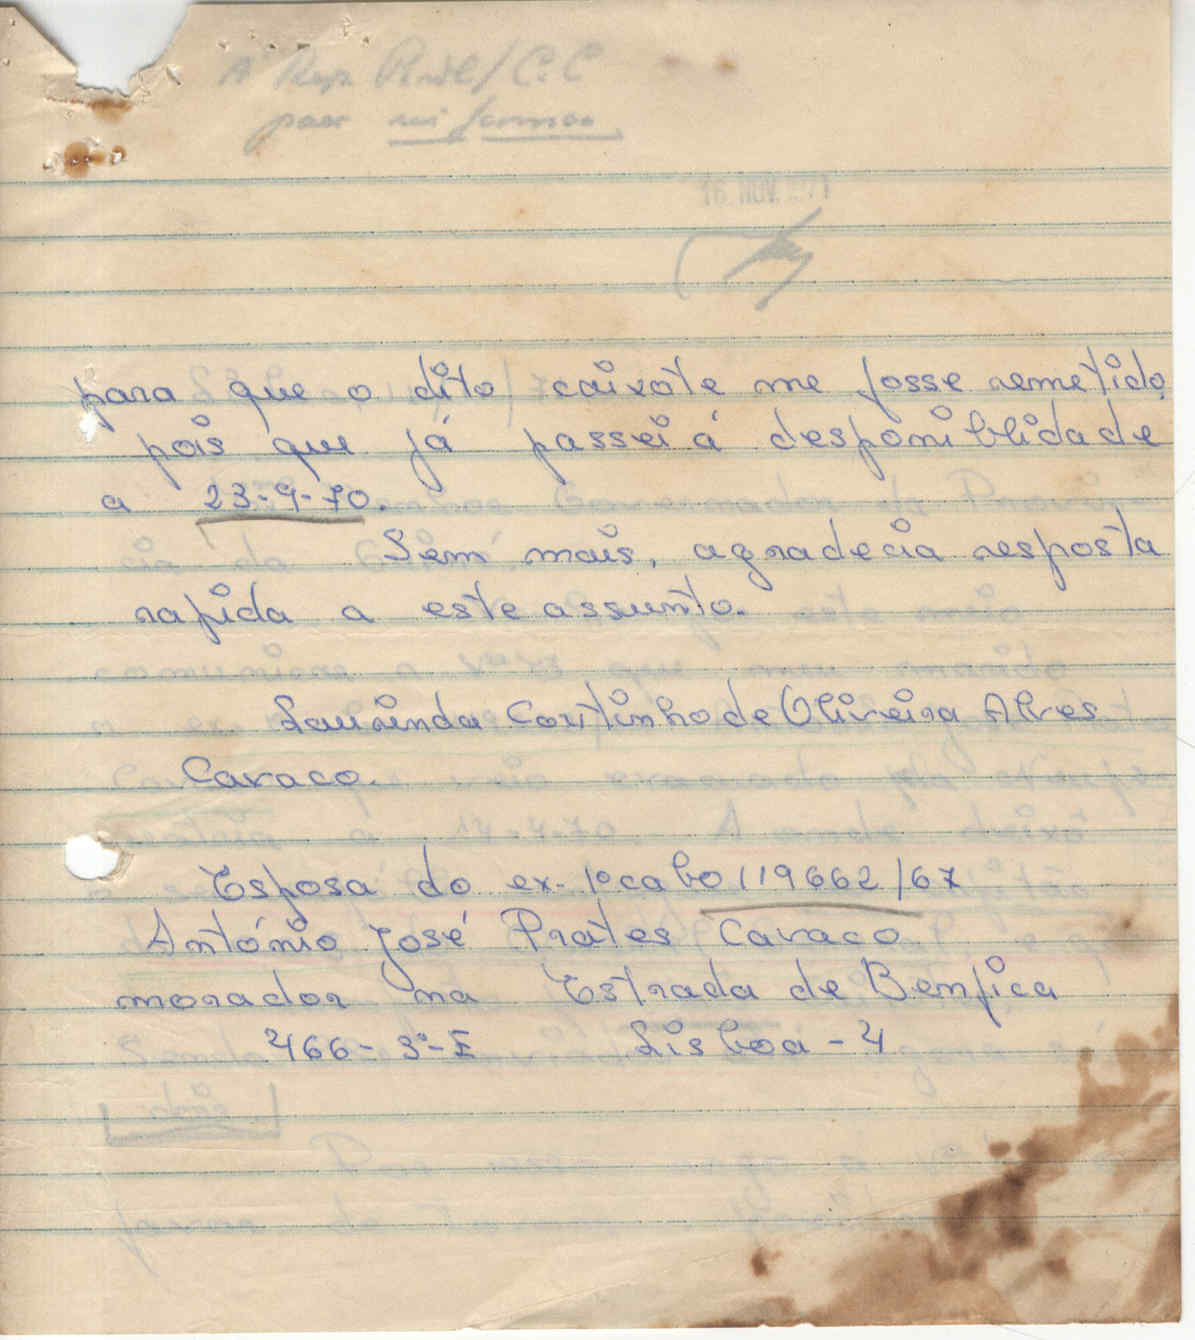 para
16 NOV. 1971
para que o dito caixote me fosse remetido,
pois que já passei á desponiblidade
a 23-9-70.
Sem mais, agradecia resposta
rapida a este assunto.
Laurinda Coutinho de Oliveira Alves
Caraco.
Esposa do ex-1º cabo 119662/67
António José Prates Caraco
morador na Estrada de Benfica
466-3º-E Lisboa-4